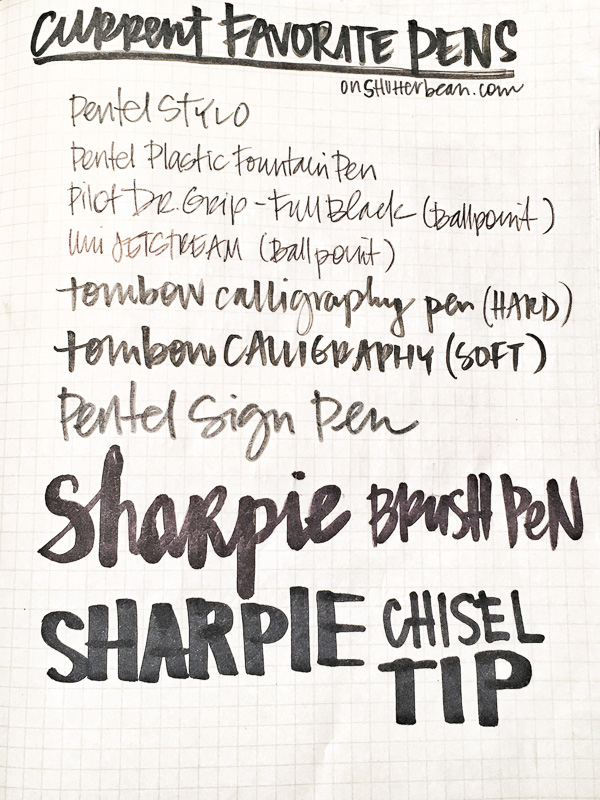 CURRENT FAVORITE PENS
on SHutterbean.com
Pentel STYLO
Pentel Plastic Fountain Pen
Pilot DR. Grip - Full Black (Ballpoint)
Uni JETSTREAM (Ballpoint)
tombow calligraphy pen (HARD)
tombow CALLIGRAPHY (SOFT)
Pentel Sign Pen
Sharpie BRUSH PeN
SHARPIE CHISEL
TIP